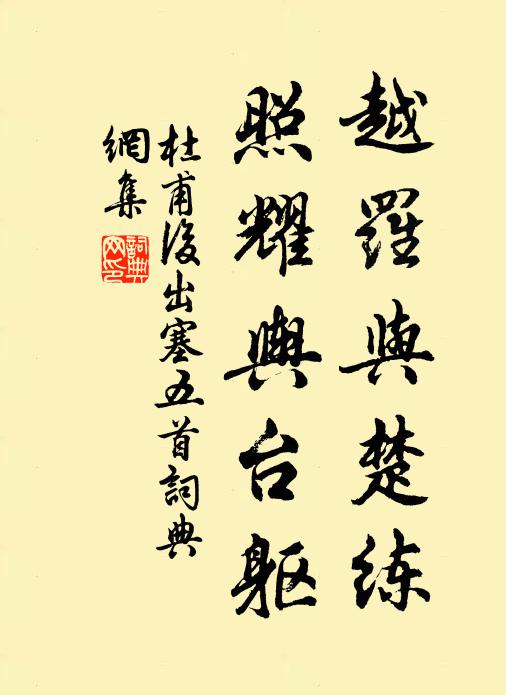 越羅與楚練
照耀輿台軀
杜甫後出塞五首詞典
網集
詞典
网印